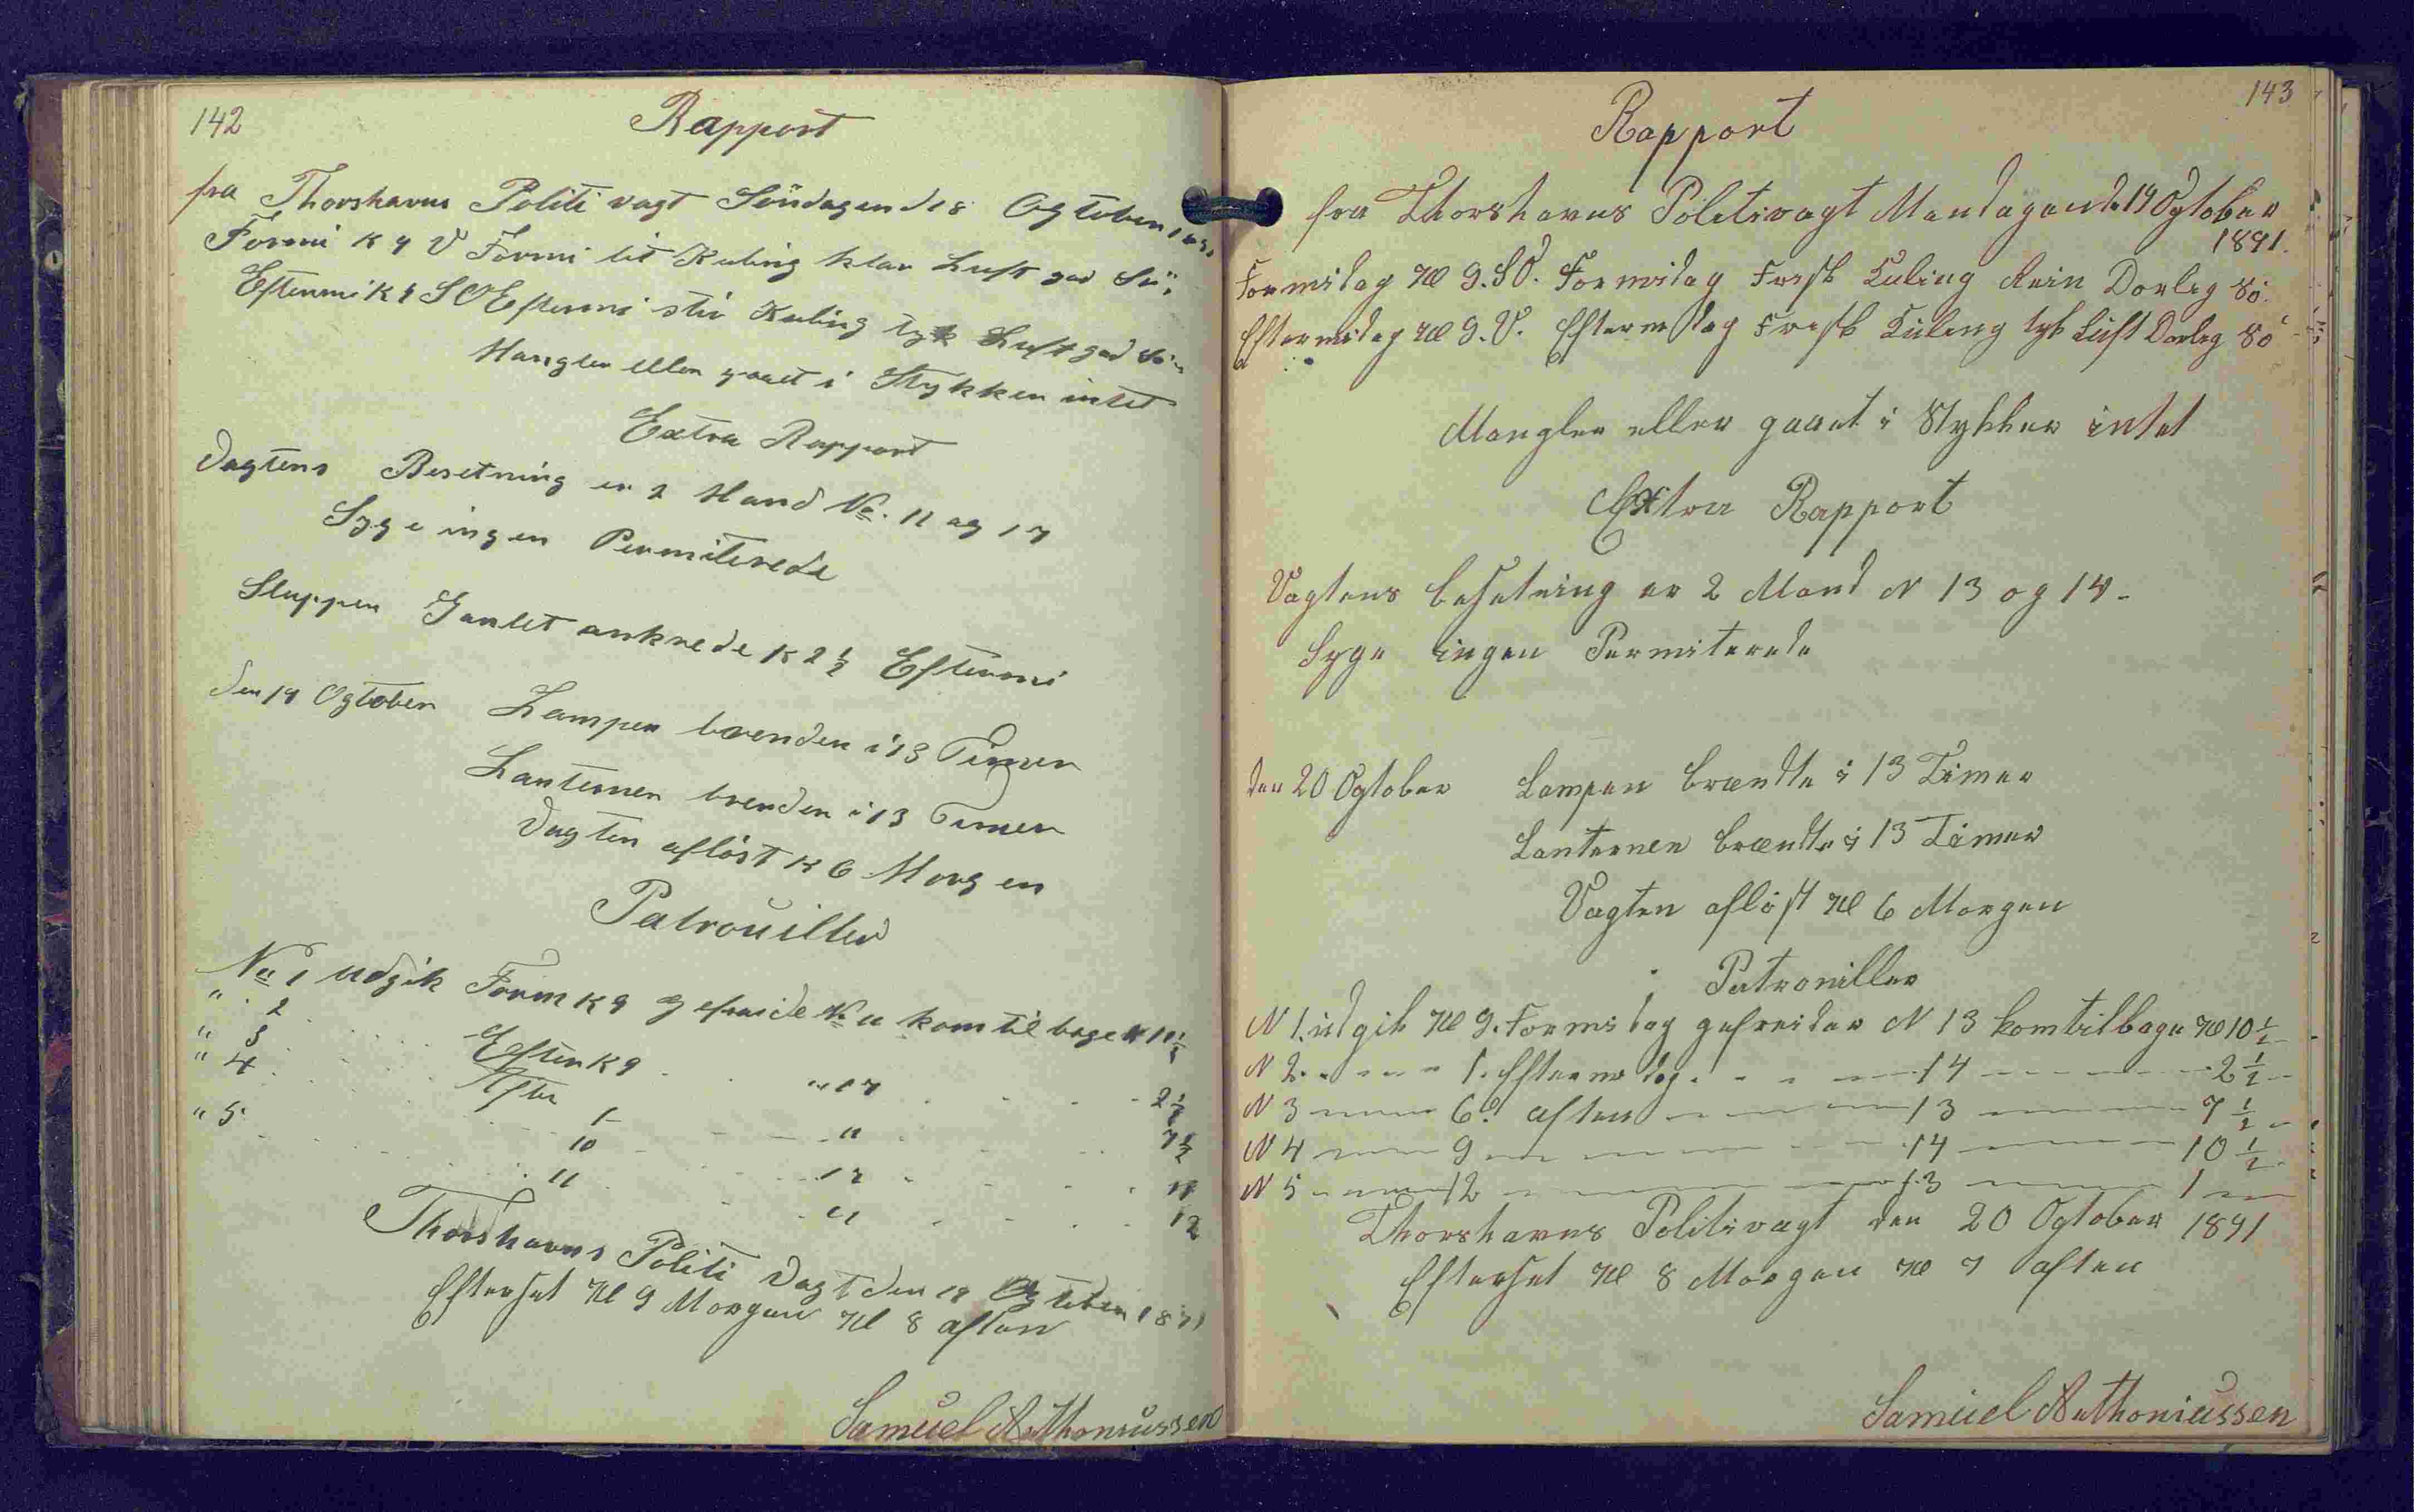 142
Rapport
fra Thorshavns Politi vagt Söndagen d 18 Ogtober 1891
Formi K 9 V Formi lit Kuling klar Luft god Sö
Eftermi K 9 SO Eftermi stiv Kuling tyk Luft god Sö
Mangler eller gaaet i Stykker intet
Extra Rapport
Vagtens Besetning er 2 Mand No. 11 og 17
Syge ingen Permiterede
Sluppen Gantet ankrede K 2 1/2 Eftermi
den 19 Ogtober Lampen brenden i 13 Timer
Lanternen brenden i 13 Timer
Vagten aflöst K 6 Morgen
Patrouiller
No 1 Udgik Form K 9 gefraide No 11 kom til bage K 10 1/2
" 2 Efter K 9 " 17 2 1/2
" 3 Efter 1 11 7 1/2
" 4 10 17 11
" 5 11 11 12
Thorshavns Politi Vagt den 19 Ogtober 1891
Efterset Kl 9 Morgen Kl 8 aften
Samuel Anthoniussen
143
Rapport
fra Thorshavns Politivagt Mandagen d. 19 Ogtober
1891.
Formidag Kl 9. SO. Formidag Frisk Kuling Rein Dorlig Sö
Eftermidag Kl 9. V. Eftermidag Frisk Kuling tyk Luft Dorlig Sö
Mangler eller gaaet i Stykker intet
Extra Rapport
Vagtens besetning er 2 Mand N 13 og 14.
Syge ingen Permiterede
den 20 Ogtober Lampen brændte i 13 Timer
Lanternen brændte i 13 Timer
Vagten aflöst Kl 6 Morgen
Patrouiller
N 1. udgik Kl 9. Formidag gefreider N 13 kom tilbage Kl 10 1/2
N 2. 1. Eftermidag 14 2 1/2
N 3 6 aften 13 7 1/2
N 4 9 14 10 1/2
N 5 12 13 1
Thorshavns Politivagt den 20 Ogtober 1891
Efterset Kl 8 Morgen Kl 7 aften
Samuel Anthoniussen